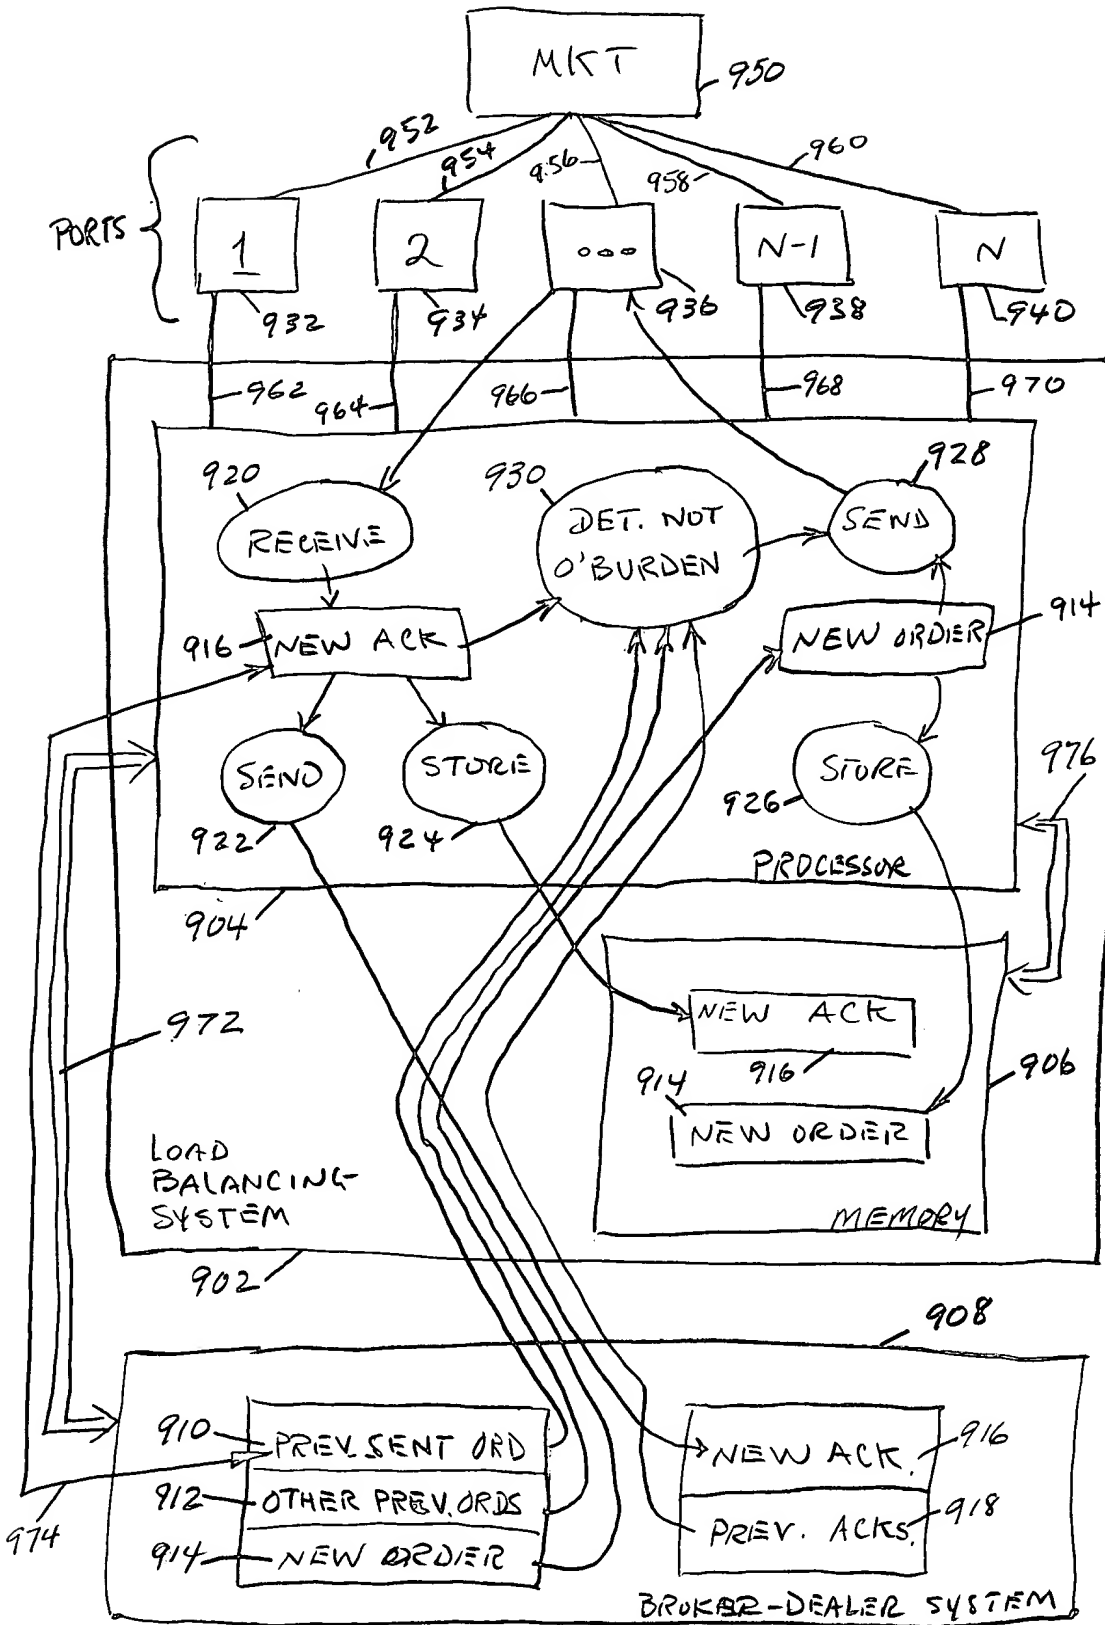 MKT
950
952
954
956
958
960
PORTS
1
2
ooo
N-1
N
932
934
936
938
940
962
964
966
968
970
920
930
928
RECEIVE
DET. NOT
O'BURDEN
SEND
916
NEW ACK
NEW ORDER
914
SEND
STORE
STORE
976
922
924
926
PROCESSOR
904
972
NEW ACK
916
906
914
NEW ORDER
LOAD
BALANCING
SYSTEM
MEMORY
902
908
910
PREV. SENT ORD
NEW ACK.
916
912
OTHER PREV. ORDS
918
PREV. ACKS.
974
914
NEW ORDER
BROKER-DEALER SYSTEM